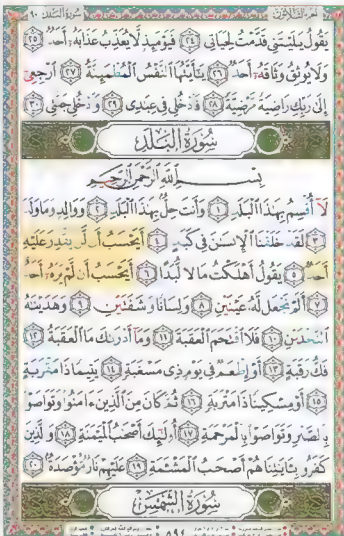 الجزء الثلاثون سورة البلد ٩٠
يَقُولُ يَٰلَيْتَنِي قَدَّمْتُ لِحَيَاتِي ٢٤ فَيَوْمَئِذٍ لَّا يُعَذِّبُ عَذَابَهُۥٓ أَحَدٌ ٢٥
وَلَا يُوثِقُ وَثَاقَهُۥٓ أَحَدٌ ٢٦ يَٰٓأَيَّتُهَا ٱلنَّفْسُ ٱلْمُطْمَئِنَّةُ ٢٧ ٱرْجِعِىٓ
إِلَىٰ رَبِّكِ رَاضِيَةً مَّرْضِيَّةً ٢٨ فَٱدْخُلِى فِى عِبَٰدِى ٢٩ وَٱدْخُلِى جَنَّتِى ٣٠
سُورَةُ الْبَلَدِ
بِسْمِ ٱللَّهِ ٱلرَّحْمَٰنِ ٱلرَّحِيمِ
لَآ أُقْسِمُ بِهَٰذَا ٱلْبَلَدِ ١ وَأَنتَ حِلٌّۢ بِهَٰذَا ٱلْبَلَدِ ٢ وَوَالِدٍ وَمَا وَلَدَ
٣ لَقَدْ خَلَقْنَا ٱلْإِنسَٰنَ فِى كَبَدٍ ٤ أَيَحْسَبُ أَن لَّن يَقْدِرَ عَلَيْهِ
أَحَدٌ ٥ يَقُولُ أَهْلَكْتُ مَالًا لُّبَدًا ٦ أَيَحْسَبُ أَن لَّمْ يَرَهُۥٓ أَحَدٌ
٧ أَلَمْ نَجْعَل لَّهُۥ عَيْنَيْنِ ٨ وَلِسَانًا وَشَفَتَيْنِ ٩ وَهَدَيْنَٰهُ
ٱلنَّجْدَيْنِ ١٠ فَلَا ٱقْتَحَمَ ٱلْعَقَبَةَ ١١ وَمَآ أَدْرَىٰكَ مَا ٱلْعَقَبَةُ ١٢
فَكُّ رَقَبَةٍ ١٣ أَوْ إِطْعَٰمٌ فِى يَوْمٍ ذِى مَسْغَبَةٍ ١٤ يَتِيمًا ذَا مَقْرَبَةٍ
١٥ أَوْ مِسْكِينًا ذَا مَتْرَبَةٍ ١٦ ثُمَّ كَانَ مِنَ ٱلَّذِينَ ءَامَنُوا۟ وَتَوَاصَوْا۟
بِٱلصَّبْرِ وَتَوَاصَوْا۟ بِٱلْمَرْحَمَةِ ١٧ أُو۟لَٰٓئِكَ أَصْحَٰبُ ٱلْمَيْمَنَةِ ١٨ وَٱلَّذِينَ
كَفَرُوا۟ بِـَٔايَٰتِنَا هُمْ أَصْحَٰبُ ٱلْمَشْـَٔمَةِ ١٩ عَلَيْهِمْ نَارٌ مُّؤْصَدَةٌۢ ٢٠
سُورَةُ الشَّمْسِ
٥٩٤